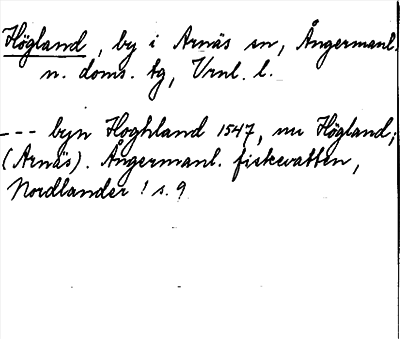 Högland, by i Arnäs sn, Ångermanl.
n. doms. tg, Vrnl. l.
--- byn Hoghland 1547, nu Högland,
(Arnäs). Ångermanl. fiskevatten,
Nordlander ! s. 9